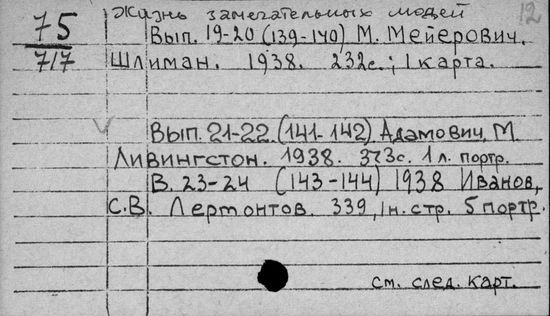 Жизнь замечательных людей 12
75 Вып. 19-20 (139-140) М. Мейерович.
717 Шлиман. 1938. 232с.; 1 карта.
Вып. 21-22. (141-142) Адамович, М.
Ливингстон. 1938. 373с. 1 л. портр.
В. 23-24 (143-144) 1938 Иванов,
С.В. Лермонтов. 339, 1н. стр. 5 портр.
см. след. карт.